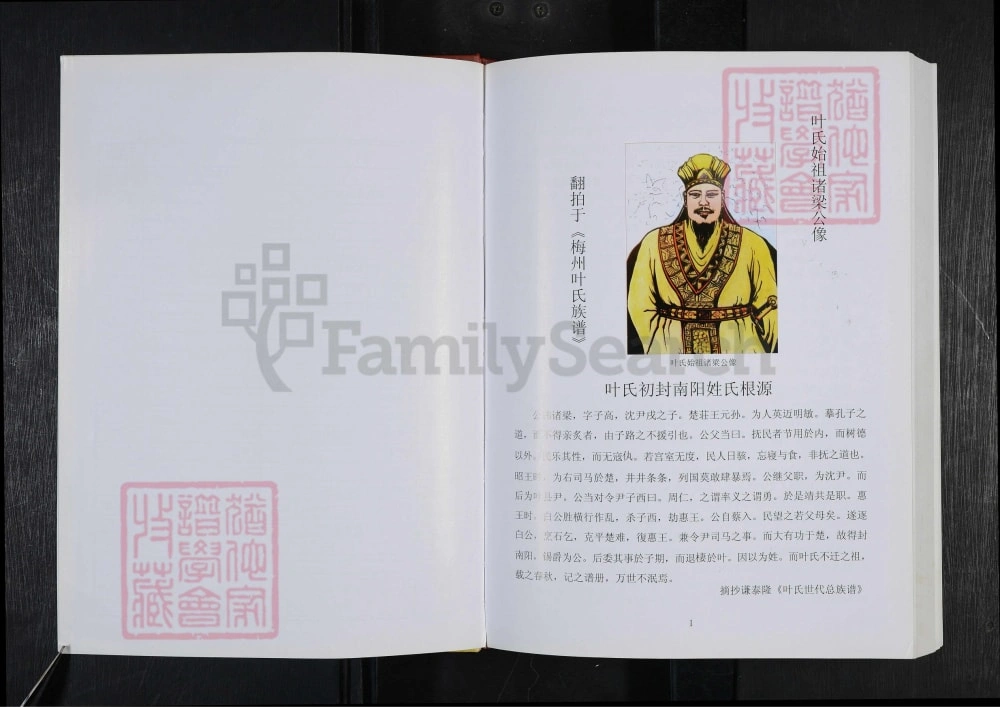 叶氏始祖诸梁公像
翻拍于《梅州叶氏族谱》
叶氏始祖诸梁公像
叶氏初封南阳姓氏根源
公 诸梁，字子高，沈尹戌之子。楚荘王元孙。为人英迈明敏。摹孔子之
道， 不得亲炙者，由子路之不援引也。公父当曰。抚民者节用於内，而树德
以外。 乐其性，而无寇仇。若宫室无度，民人日骇，忘寝与食，非扰之道也。
昭王时，为右司马於楚，井井条条，列国莫敢肆暴焉。公继父职，为沈尹。而
后为叶县尹。公当对令尹子西曰。周仁，之谓率义之谓勇。於是靖共是职。惠
王时。白公胜横行作乱，杀子西，劫惠王。公自蔡入。民望之若父母矣。遂逐
白公， 石乞，克平楚难，復惠王。兼令尹司马之事。而大有功于楚，故得封
南阳。锡爵为公。后委其事於子期，而退棲於叶。因以为姓。而叶氏不迁之祖，
载之春秋，记之谱册，万世不泯焉。
摘抄谦泰隆《叶氏世代总族谱》
1
FamilySearch
猶他家
譜學會
收藏
猶他家
譜學會
收藏